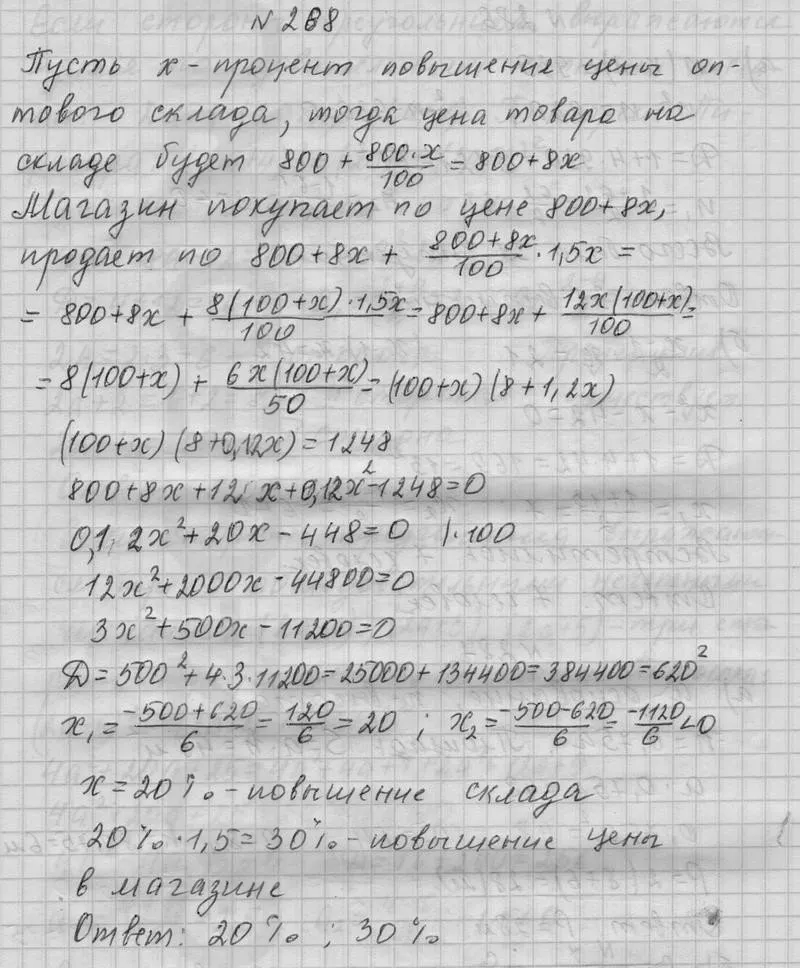 N 288
Пусть x - процент повышение цены оп-
тового склада, тогда цена товара на
складе будет 800 + 800·x/100 = 800+8x
Магазин покупает по цене 800+8x,
продает по 800+8x + 800+8x/100 · 1,5x =
= 800+8x + 8(100+x)·1,5x/100 = 800+8x + 12x(100+x)/100 =
= 8(100+x) + 6x(100+x)/50 = (100+x)(8+1,2x)
(100+x)(8+0,12x) = 1248
800+8x+12x+0,12x²-1248=0
0,12x²+20x-448=0 |·100
12x²+2000x-44800=0
3x²+500x-11200=0
D=500²+4·3·11200=25000+134400=384400=620²
x₁ = -500+620/6 = 120/6 = 20 ; x₂ = -500-620/6 = -1120/6 <0
x=20% - повышение склада
20%·1,5=30% - повышение цены
в магазине
Ответ: 20% ; 30%